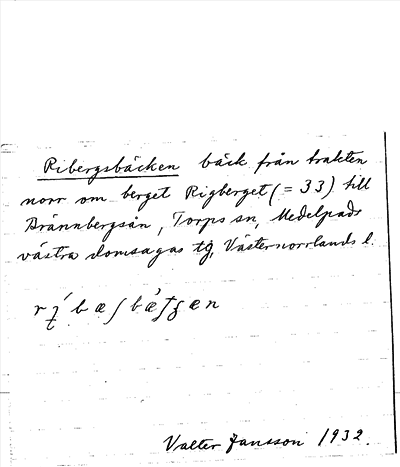 Ribergsbäcken bäck från trakten
norr om berget Rigberget (= 33) till
Brännbergsån, Torps sn, Medelpads
västra domsagas tg, Västernorrlands l.
Valter Jansson 1932.